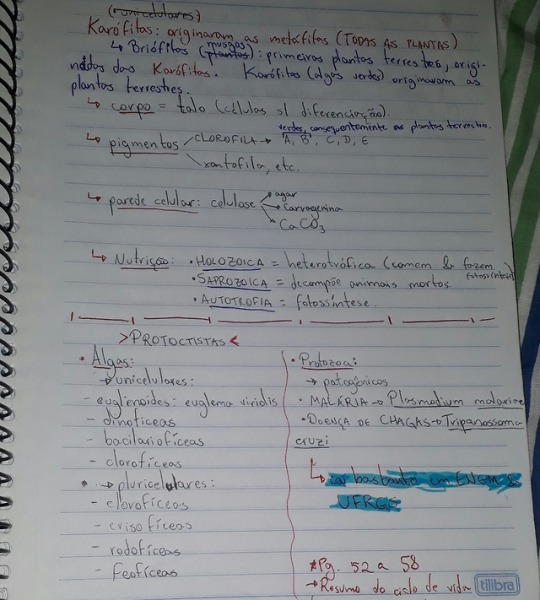 (unicelulares)
Karófitas: originaram as metáfitas (TODAS AS PLANTAS)
↳ Briófitas (musgos plantas): primeiras plantas terrestres, origi-
nadas das Karófitas. Karófitas (algas verdes) originaram as
plantas terrestres.
↳ corpo = talo (células s/ diferenciação).
verdes, consequentemente as plantas terrestres.
↳ pigmentos CLOROFILA → A, B, C, D, E
xantofila, etc.
↳ parede celular: celulose → agar
→ Carragenina
→ CaCO3
↳ Nutrição: • HOLOZOICA = heterotráfica (comem & fazem fotossíntese)
• SAPROZOICA = decompõe animais mortos
• AUTOTROFIA = fotossíntese.
>PROTOCTISTAS<
• Algas:
→ unicelulares:
euglenoides: euglema viridis
- dinofíceas
- bacilariofíceas
- clorofíceas
• → pluricelulares:
- clorofíceas
- crisofíceas
- rodofíceas
- Feofíceas
• Protozoa:
→ patogênicos
• MALÁRIA → Plasmodium malariae
• DOENÇA DE CHAGAS → Tripanossoma
cruzi
↳ cai bastante em ENEM &
UFRGS
*Pg. 52 a 58
→ Resumo do ciclo de vida
tilibra